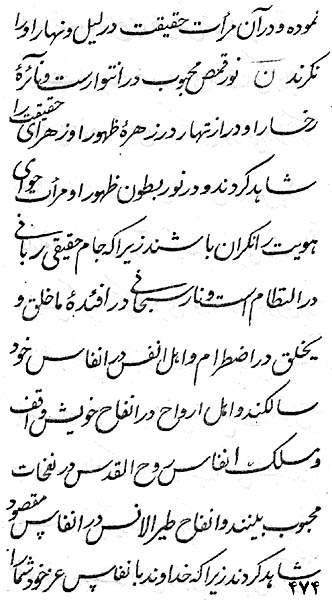 نموده و در آن مرأت حقیقت در لیل و نهار او را
نگرند ن نور قمص محبوب در انتوار است و نائرهٔ
رخسار او در ازتهار در زهرهٔ ظهور او زهرای حقیقت را
شاهد کردند و در نور بطون ظهور او مرأت جوای
هویت را نکران باشند زیرا که جام حقیقی ربانی
در التظام است و نار سبحانی در افئدهٔ ما خلق و
یخلق در اضطرام و اهل انفس در انفاس خود
سالکند و اهل ارواح در انفاح خویش واقف
و مسلک انفاس روح القدس در نفحات
محبوب بینند و انفاح طیر الانس در انفاس مقصود
شاهد کردند زیرا که خداوند بانفاس عز خود شما را
۴۷۴